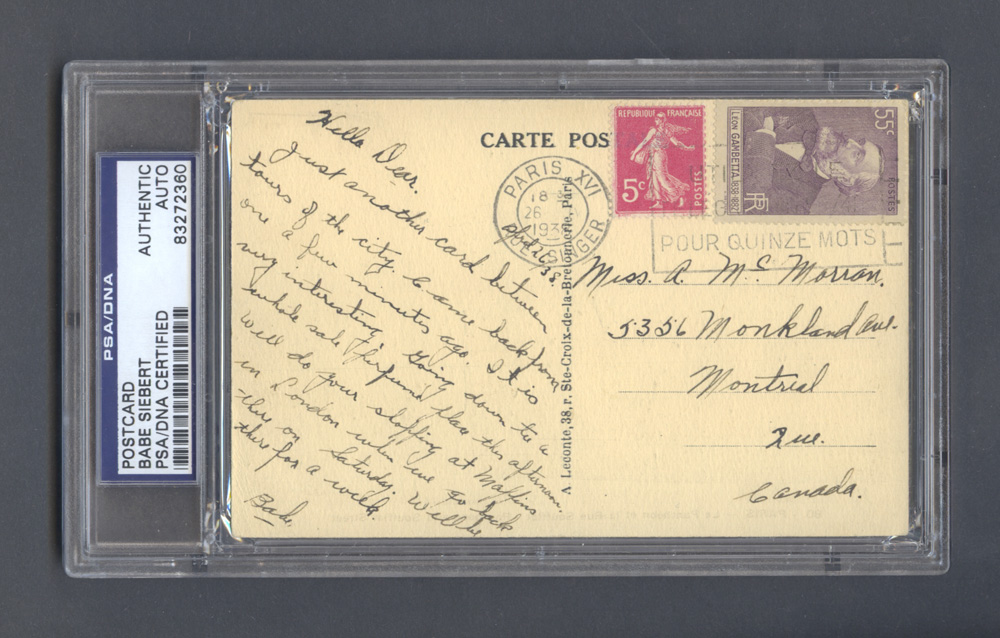 PSA/DNA
POSTCARD
BABE SIEBERT
PSA/DNA CERTIFIED
AUTHENTIC
AUTO
83272360
CARTE POS
Hello Dear.
Just another card between
tours of the city. Came back from
one a few minutes ago. It is
very interesting. Going down to a
whole sale place this afternoon.
Will do your shopping at Maffins
in London when we go back
there on Saturday. Will be
there for a week.
Babe
A Leconte, 38, r. Ste-Croix-de-la-Bretonnerie, Paris
REPUBLIQUE FRANÇAISE
5c
POSTES
LEON GAMBETTA 1838-1882
55c
POSTES
RF
PARIS XVI
18
26
193
SINGER
26
38
POUR QUINZE MOTS
Miss. A. Mc Morran.
5356 Monkland ave.
Montreal
Que.
Canada.